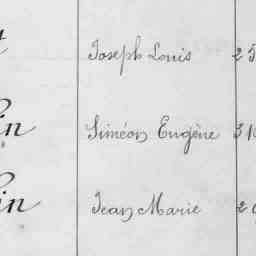 Joseph Louis 2
Siméon Eugène 3
Jean Marie 2